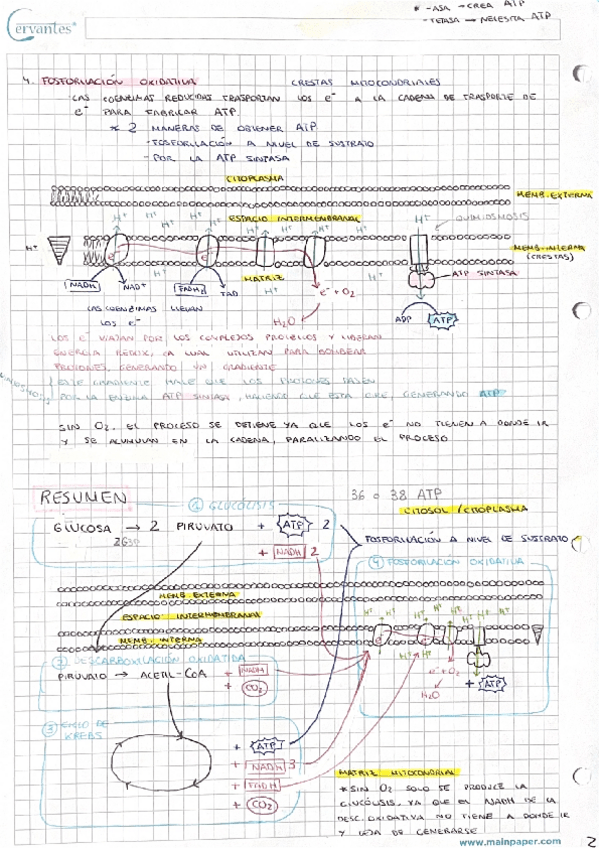 Cervantes
* -ASA → CREA ATP
-TETASA → NECESITA ATP
4. FOSFORILACIÓN OXIDATIVA CRESTAS MITOCONDRIALES
LAS COENZIMAS REDUCIDAS TRASPORTAN LOS e⁻ A LA CADENA DE TRASPORTE DE
e⁻ PARA FABRICAR ATP
* 2 MANERAS DE OBTENER ATP
-FOSFORILACIÓN A NIVEL DE SUSTRATO
-POR LA ATP SINTASA
CITOPLASMA
MEMB. EXTERNA
H⁺ H⁺ H⁺ H⁺ H⁺ H⁺ QUIMIOSMOSIS
ESPACIO INTERMEMBRANAL
H⁺
MEMB. INTERNA
(CRESTAS)
e⁻ e⁻
H⁺ MATRIZ H⁺ ATP SINTASA
NADH NAD⁺ FADH₂ FAD H⁺ e⁻ + O₂
LAS COENCIMAS LLEVAN
LOS e⁻
H₂O
ADP ATP
LOS e⁻ VIAJAN POR LOS COMPLEJOS PROTEICOS Y LIBERAN
ENERGÍA REDOX, LA CUAL UTILIZAN PARA BOMBEAR
PROTONES, GENERANDO UN GRADIENTE
ESTE GRADIENTE HACE QUE LOS PROTONES PASEN
POR LA ENZIMA ATP SINTASA, HACIENDO QUE ESTA GIRE, GENERANDO ATP
SIN O₂, EL PROCESO SE DETIENE YA QUE LOS e⁻ NO TIENEN A DONDE IR
Y SE ACUMULAN EN LA CADENA, PARALIZANDO EL PROCESO
RESUMEN 36 o 38 ATP
① GLUCÓLISIS
CITOSOL / CITOPLASMA
GLUCOSA → 2 PIRUVATO + ATP 2
+ NADH 2
FOSFORILACIÓN A NIVEL DE SUSTRATO
④ FOSFORILACIÓN OXIDATIVA
MEMB EXTERNA
ESPACIO INTERMEMBRANAL
MEMB. INTERNA
H⁺ H⁺ H⁺ H⁺ H⁺
H⁺ H⁺
e⁻ + O₂
H₂O
+ ATP
② DESCARBOXILACIÓN OXIDATIDA
PIRUVATO → ACETIL-COA + NADH
+ CO₂
③ CICLO DE
KREBS
+ ATP
+ NADH 3
+ FADH
+ CO₂
MATRIZ MITOCONDRIAL
* SIN O₂ SOLO SE PRODUCE LA
GLUCÓLISIS, YA QUE EL NADH DE LA
DESC. OXIDATIVA NO TIENE A DONDE IR
Y DEJA DE GENERARSE
www.mainpaper.com
2